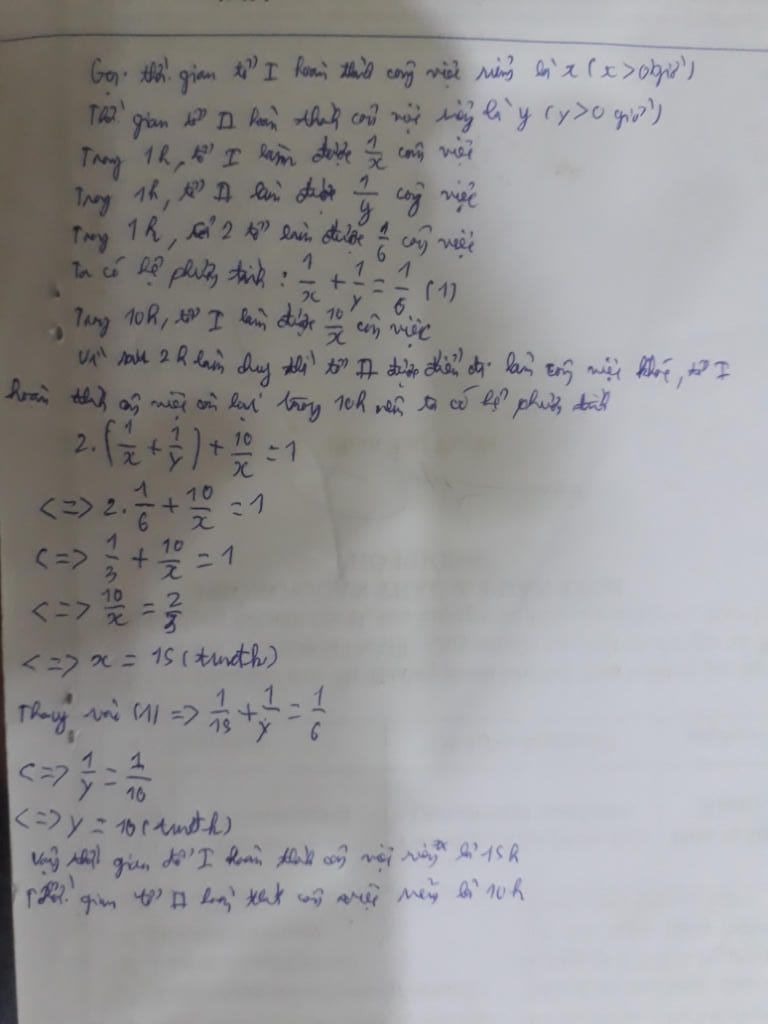 Gọi thời gian tổ I hoàn thành công việc riêng là x (x > 0 giờ)
Thời gian tổ II hoàn thành công việc riêng là y (y > 0 giờ)
Trong 1h, tổ I làm được 1/x công việc
Trong 1h, tổ II làm được 1/y công việc
Trong 1h, cả 2 tổ làm được 1/6 công việc
Ta có hệ phương trình : 1/x + 1/y = 1/6 (1)
Trong 10h, tổ I làm được 10/x công việc
Vì sau 2h làm chung thì tổ II được điều đi làm công việc khác, tổ I
hoàn thành công việc còn lại trong 10h nên ta có hệ phương trình
2.(1/x + 1/y) + 10/x = 1
<=> 2. 1/6 + 10/x = 1
<=> 1/3 + 10/x = 1
<=> 10/x = 2/3
<=> x = 15 (tmđk)
Thay vào (1) => 1/15 + 1/y = 1/6
<=> 1/y = 1/10
<=> y = 10 (tmđk)
Vậy thời gian tổ I hoàn thành công việc riêng là 15h
Thời gian tổ II hoàn thành công việc riêng là 10h